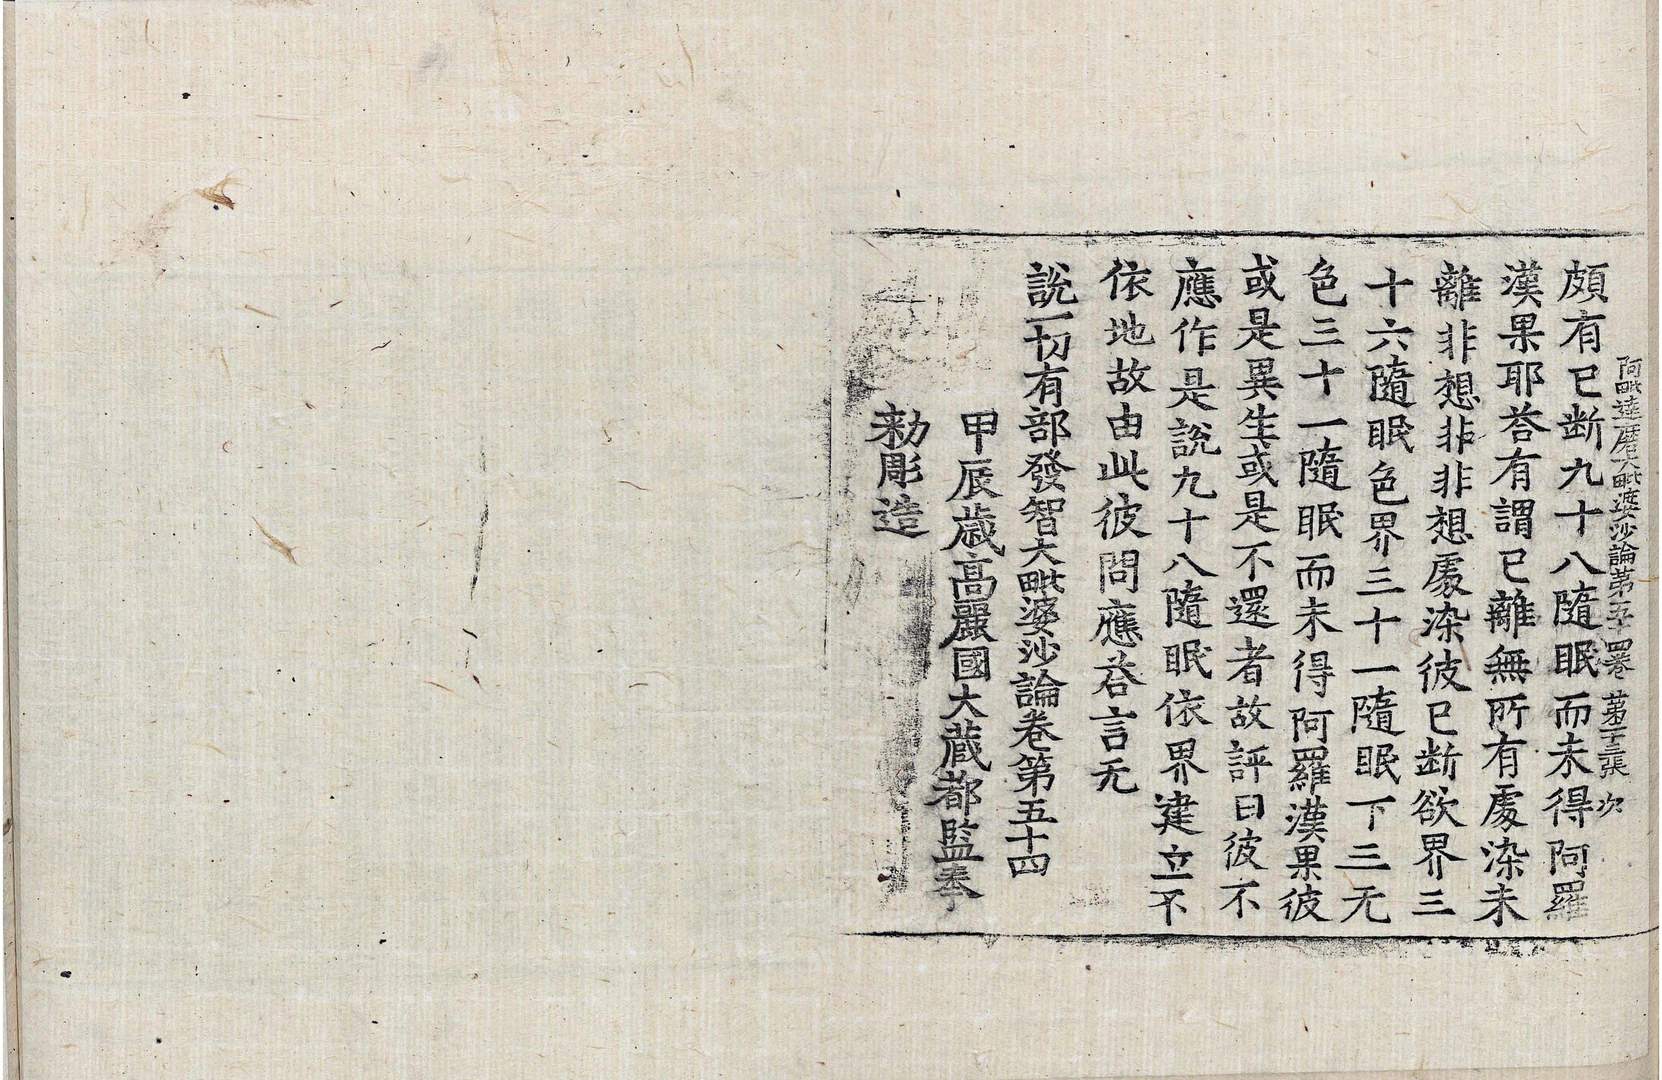 阿毗達磨大毗婆沙論第五十四卷 第十三張 次
頗有已断九十八隨眠而未得阿羅
漢果耶荅有謂已離無所有處染未
離非想非非想處染彼已断欲界三
十六隨眠色界三十一隨眠下三无
色三十一隨眠而未得阿羅漢果彼
或是異生或是不還者故評曰彼不
應作是說九十八隨眠依界建立不
依地故由此彼問應荅言无
說一切有部發智大毗婆沙論卷第五十四
甲辰歲高麗國大藏都監奉
勑彫造